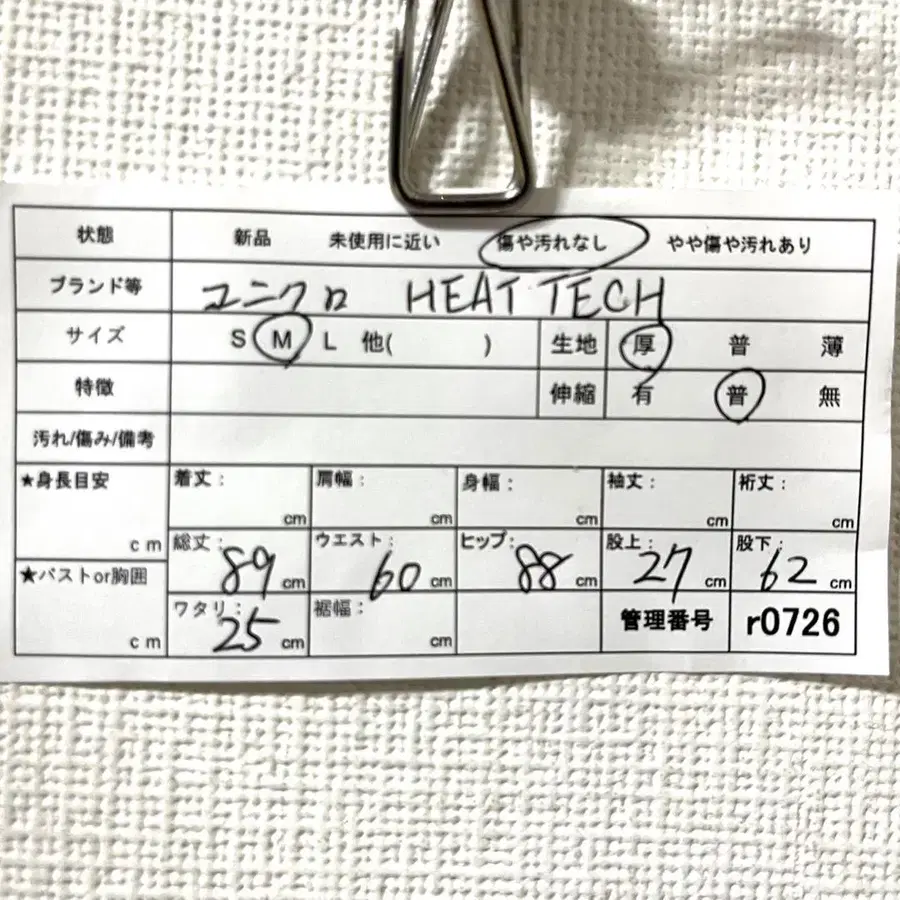 状態 新品 未使用に近い 傷や汚れなし やや傷や汚れあり
ブランド等 ユニクロ HEAT TECH
サイズ S M L 他( ) 生地 厚 普 薄
特徴 伸縮 有 普 無
汚れ/傷み/備考
★身長目安 cm 着丈: cm 肩幅: cm 身幅: cm 袖丈: cm 裄丈: cm
総丈: 89 cm ウエスト: 60 cm ヒップ: 88 cm 股上: 27 cm 股下: 62 cm
★バストor胸囲 cm ワタリ: 25 cm 裾幅: cm 管理番号 r0726